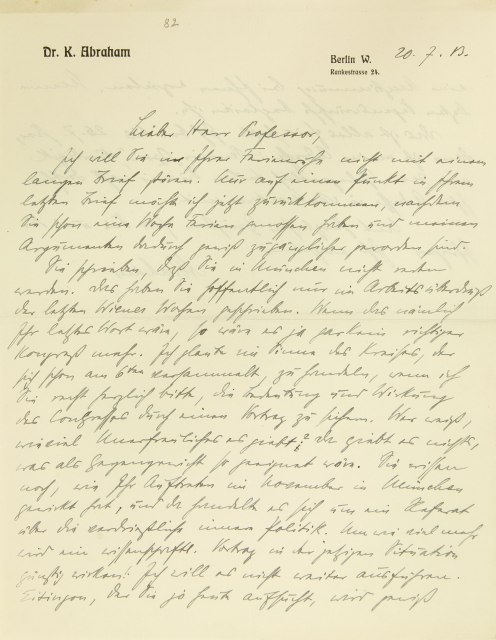 82
Dr. K. Abraham
Berlin W.
Rankestrasse 24.
20. 7. 13.
Lieber Herr Professor,
Ich will Sie in Ihrer Ferienruhe nicht mit einem
langen Brief stören. Nur auf einen Punkt in Ihrem
letzten Brief möchte ich jetzt zurückkommen, nachdem
Sie schon eine Woche Ferien genossen haben und meinen
Argumenten dadurch gewiß zugänglicher geworden sind.
Sie schreiben, daß Sie in München nicht reden
werden. Das haben Sie hoffentlich nur im Arbeitsüberdruß
der letzten Wiener Wochen geschrieben. Wenn das nämlich
Ihr letztes Wort wäre, so wäre es ja gar kein richtiger
Kongreß mehr. Ich glaube im Sinne des Kreises, der
sich schon am 6ten versammelt, zu handeln, wenn ich
Sie recht herzlich bitte, die Bedeutung und Wirkung
des Congresses durch einen Vortrag zu sichern. Wer weiß,
wieviel Unerfreuliches es giebt? Da giebt es nichts,
was als Gegengewicht so geeignet wäre. Sie wissen
noch, wie Ihr Auftreten im November in München
gewirkt hat, und da handelte es sich um ein Referat
über die verdrießliche innere Politik. Um wie viel mehr
wird ein wissenschaftl. Vortrag in der jetzigen Situation
günstig wirken! Ich will es nicht weiter ausführen.
Eitingon, der Sie ja heute aufsucht, wird gewiß